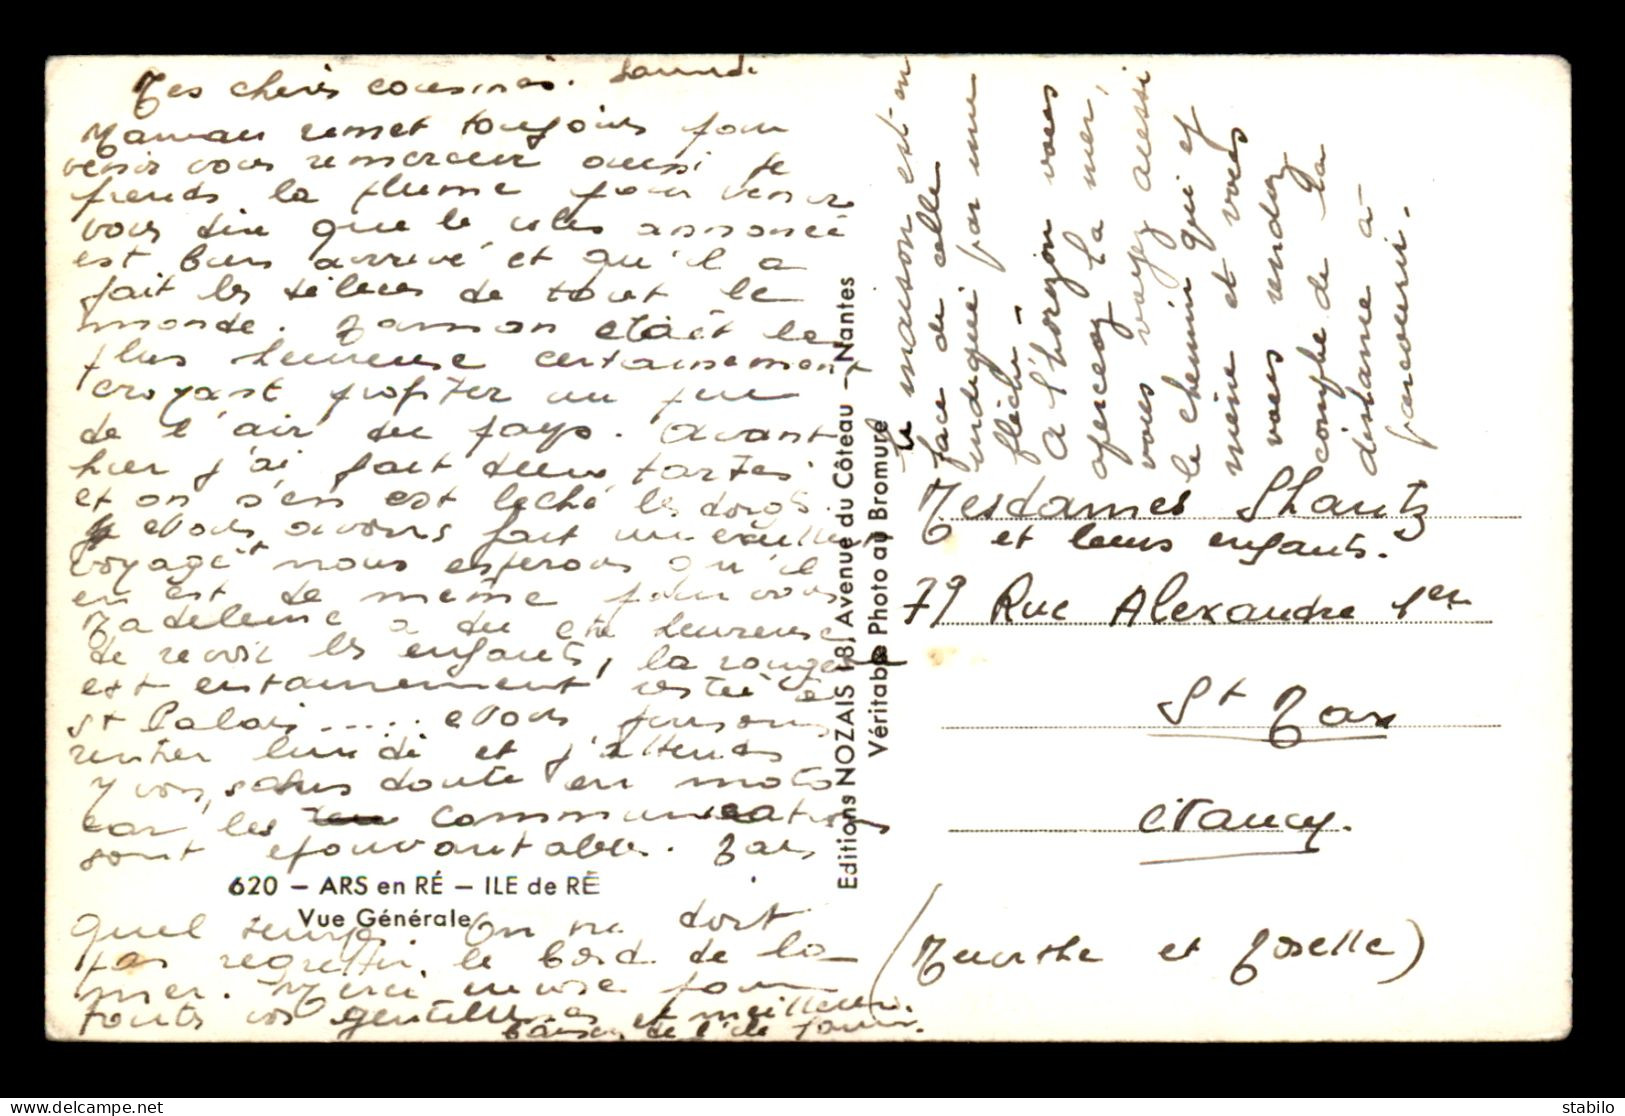 Mes chères cousines. Samedi
Maman remet toujours pour
venir vous remercier aussi je
prends la plume pour venir
vous dire que le colis annoncé
est bien arrivé et qu'il a
fait les délices de tout le
monde. Maman était la
plus heureuse certainement
croyant profiter un peu
de l'air du pays. Avant
hier j'ai fait deux tartes
et on s'en est léché les doigts
Nous avons fait un excellent
voyage, nous espérons qu'il
en est de même pour vous
Madeleine a dû être heureuse
de revoir les enfants, la
est certainement restée à
St Palais ..... Nous pensons
rentrer lundi et j'attends
Yvon, sans doute en moto
car les communications
sont épouvantables. Mais
620 – ARS en RÉ – ILE de RÉ
Vue Générale
quel temps. On ne doit
pas regretter le bord de la
mer. Merci encore pour
toutes vos gentillesses et meilleurs
baisers de l'île
Editions NOZAIS 18, Avenue du Côteau – Nantes
Véritable Photo au Bromure
La maison est en
face de celle
indiquée par une
flèche –
A l'horizon vous
apercevez la mer,
vous voyez aussi
le chemin qui y
mène et vous
vous rendez
compte de la
distance à
parcourir.
Mesdames Shantz
et leurs enfants.
79 Rue Alexandre 1er
St Max
Nancy.
(Meurthe et Moselle)